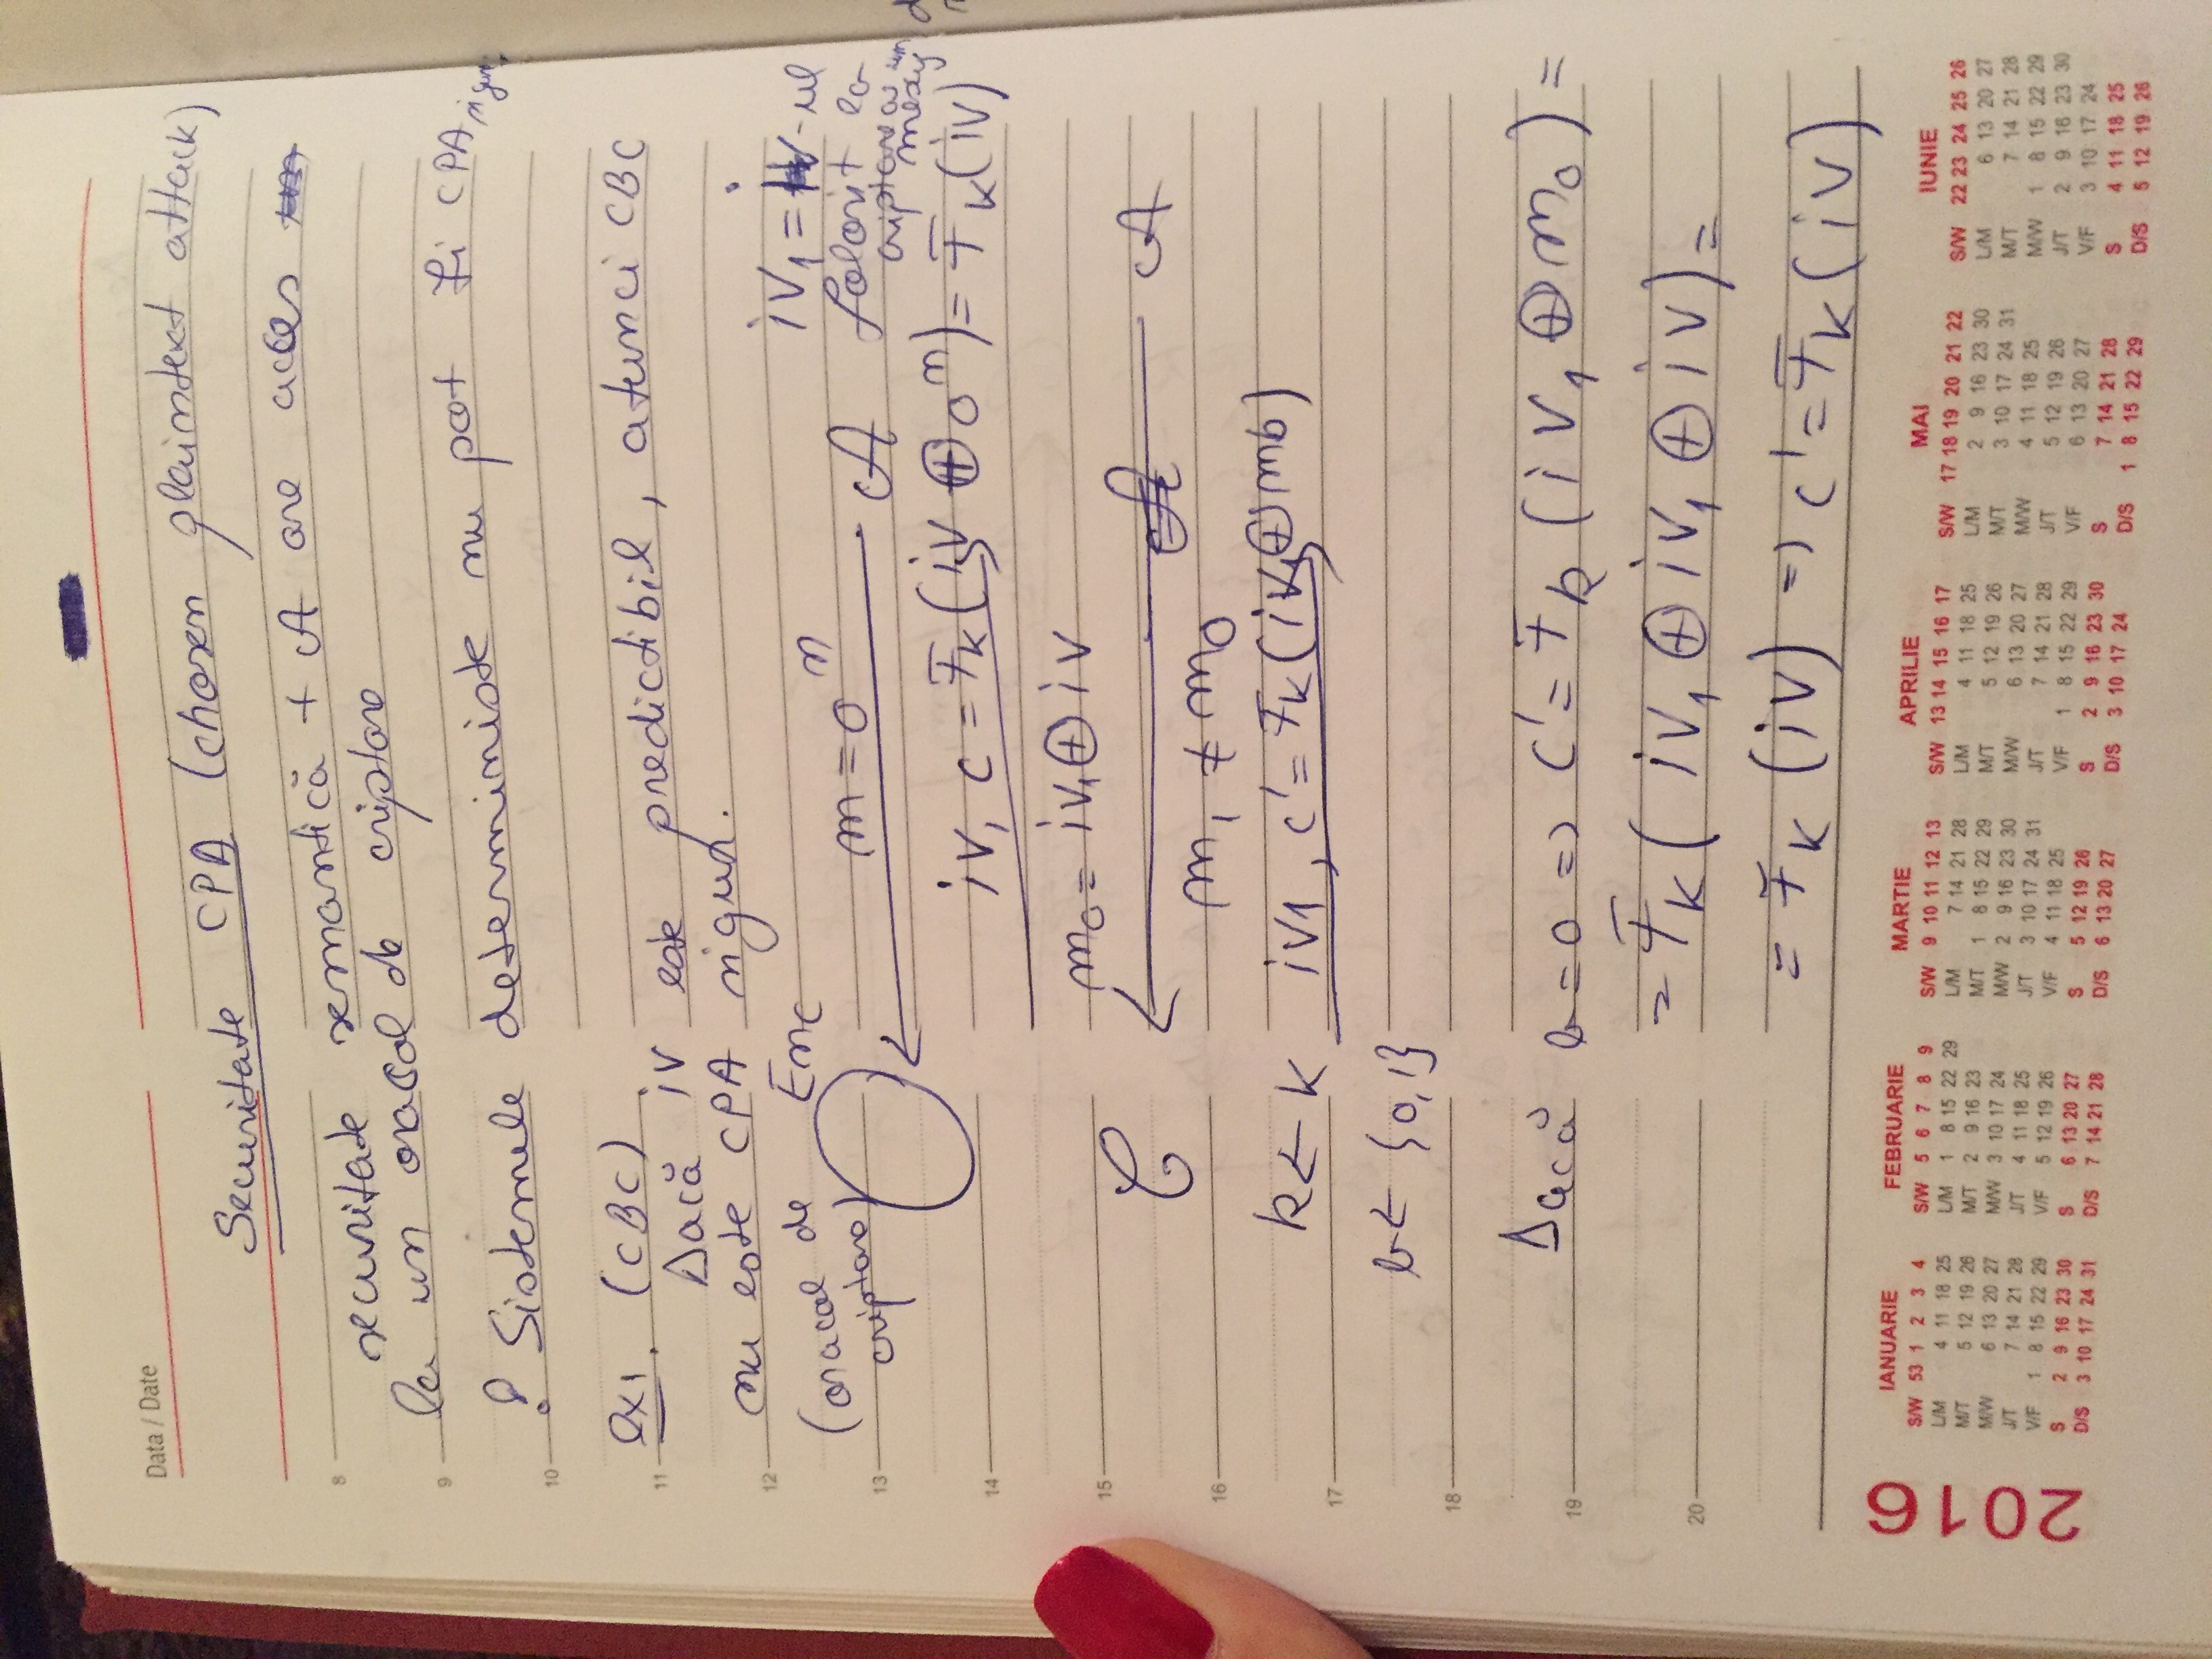 Data / Date
Securitate CPA (chosen plaintext attack)
securitate semantică + A are acces
la un oracol de criptare
! Sistemele deterministe nu pot fi CPA sigure
8
9
10
ex1. (CBC)
11
Dacă iv este predictibil, atunci CBC
nu este CPA sigur.
12
(oracol de criptare) Enc
13
m = 0^n A
iv₁ = iv-ul
folosit la
criptarea
mesaj
iv, c = F_k(iv ⊕ 0^n) = F_k(iv)
14
m₀ = iv₁ ⊕ iv
15
C A
m₁ ≠ m₀
16
k ← K iv1, c' = F_k(iv₁ ⊕ mb)
17
b ← {0,1}
18
Dacă b=0 => c' = F_k (iv₁ ⊕ m₀) =
19
= F_k( iv₁ ⊕ iv₁ ⊕ iv) =
20
= F_k (iv) => c' = F_k(iv)
2016
IANUARIE
S/W 53 1 2 3 4
L/M 4 11 18 25
M/T 5 12 19 26
M/W 6 13 20 27
J/T 7 14 21 28
V/F 1 8 15 22 29
S 2 9 16 23 30
D/S 3 10 17 24 31
FEBRUARIE
S/W 5 6 7 8 9
L/M 1 8 15 22 29
M/T 2 9 16 23
M/W 3 10 17 24
J/T 4 11 18 25
V/F 5 12 19 26
S 6 13 20 27
D/S 7 14 21 28
MARTIE
S/W 9 10 11 12 13
L/M 7 14 21 28
M/T 1 8 15 22 29
M/W 2 9 16 23 30
J/T 3 10 17 24 31
V/F 4 11 18 25
S 5 12 19 26
D/S 6 13 20 27
APRILIE
S/W 13 14 15 16 17
L/M 4 11 18 25
M/T 5 12 19 26
M/W 6 13 20 27
J/T 7 14 21 28
V/F 1 8 15 22 29
S 2 9 16 23 30
D/S 3 10 17 24
MAI
S/W 17 18 19 20 21 22
L/M 2 9 16 23 30
M/T 3 10 17 24 31
M/W 4 11 18 25
J/T 5 12 19 26
V/F 6 13 20 27
S 7 14 21 28
D/S 1 8 15 22 29
IUNIE
S/W 22 23 24 25 26
L/M 6 13 20 27
M/T 7 14 21 28
M/W 1 8 15 22 29
J/T 2 9 16 23 30
V/F 3 10 17 24
S 4 11 18 25
D/S 5 12 19 26